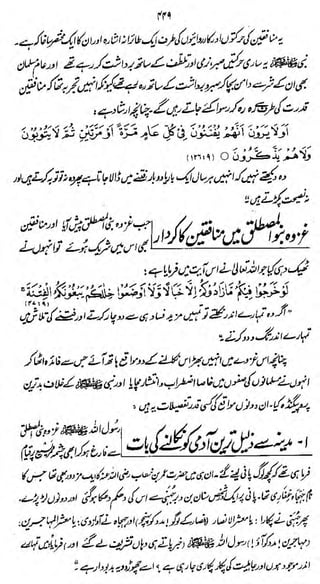 ۴۴۹
یہ منافقین کی حرکتوں اور کارروائیوں کی طرف ایک طائرانہ اشارہ اور ان کا ایک مختصر سا خاکہ ہے۔
نبی ﷺ یہ ساری حرکتیں صبر ونرمی اور تلطف کے ساتھ برداشت کر رہے تھے اور عام مسلمان
بھی ان کے شر سے دامن بچا کر صبر و برداشت کے ساتھ رہ رہے تھے کیونکہ انہیں تجربہ تھا کہ منافقین
قدرت کی طرف سے رہ رہ کر رسوا کئے جاتے رہیں گے۔ چنانچہ ارشاد ہے:
اَوَلَا یَرَوْنَ اَنَّهُمْ یُفْتَنُوْنَ فِیْ كُلِّ عَامٍ مَّرَّةً اَوْ مَرَّتَیْنِ ثُمَّ لَا یَتُوْبُوْنَ
وَلَا هُمْ یَذَّكَّرُوْنَ ○ (۱۲۶:۹)
وہ دیکھتے نہیں کہ انہیں ہر سال ایک بار یا دو بار فتنے میں ڈالا جاتا ہے پھر وہ نہ تو توبہ کرتے ہیں اور
نہ نصیحت پکڑتے ہیں۔"
غزوہ بنو المصطلق میں منافقین کا کردار
جب غزوہ بنی المصطلق پیش آیا اور منافقین
بھی اس میں شریک ہوئے تو انہوں نے
ٹھیک وہی کیا جو اللہ تعالیٰ نے اس آیت میں فرمایا ہے:
لَوْ خَرَجُوْا فِیْكُمْ مَّا زَادُوْكُمْ اِلَّا خَبَالًا وَّلَا۟اَوْضَعُوْا خِلٰلَكُمْ یَبْغُوْنَكُمُ الْفِتْنَةَ ۚ
(۴۷:۹)
"اگر وہ تمہارے اندر نکلتے تو تمہیں مزید فساد ہی سے دوچار کرتے اور فتنے کی تلاش میں
تمہارے اندر تگ و دو کرتے۔"
چنانچہ اس غزوے میں انہیں بھڑاس نکالنے کے دو مواقع ہاتھ آئے جس سے فائدہ اٹھا کر
انہوں نے مسلمانوں کی صفوں میں خاصا اضطراب وانتشار مچایا اور نبی ﷺ کے خلاف بدترین
پروپیگنڈہ کیا۔ ان دونوں مواقع کی کسی قدر تفصیلات یہ ہیں:
۱۔ مدینہ سے ذلیل ترین آدمی کو نکالنے کی بات
رسول اللہ ﷺ غزوہ بنی المصطلق
سے فارغ ہو کر ابھی چشمہ مریسیع پر قیام
فرما ہی تھے کہ کچھ لوگ پانی لینے گئے۔ ان ہی میں حضرت عمر بن خطاب رضی اللہ عنہ کا ایک مزدور بھی تھا جس کا
نام جہجاہ غفاری تھا۔ پانی پر ایک شخص سنان بن وبر جہنی سے اس کی دھکم دھکا ہو گئی اور دونوں لڑ پڑے۔
پھر جہنی نے پکارا: یا معشر الانصار (انصار کے لوگو! مدد کو پہنچو) اور جہجاہ نے آواز دی: یا معشر المہاجرین:
(مہاجرین! مدد کو آؤ!) رسول اللہ ﷺ (خبر پاتے ہی وہاں تشریف لے گئے اور) فرمایا: میں تمہارے
اندر موجود ہوں اور جاہلیت کی پکار پکاری جا رہی ہے؟ اسے چھوڑو یہ بدبودار ہے۔"